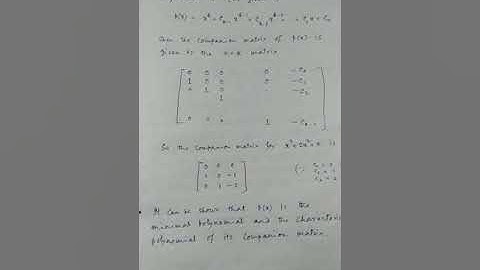 P(x) = x^k + C_{k-1} x^{k-1} + ... + C_1 x + C_0
then the companion matrix of P(x) is
given by the n×n matrix
0 0 0 0 -C_0
1 0 0 0 -C_1
0 1 0 . -C_2
1
0 0 0 1 -C_{k-1}
So the companion matrix for x³+2x²+x is
0 0 0
1 0 -1
0 1 -2
• It can be shown that P(x) is the
minimal polynomial and the characteris
polynomial of its companion matrix